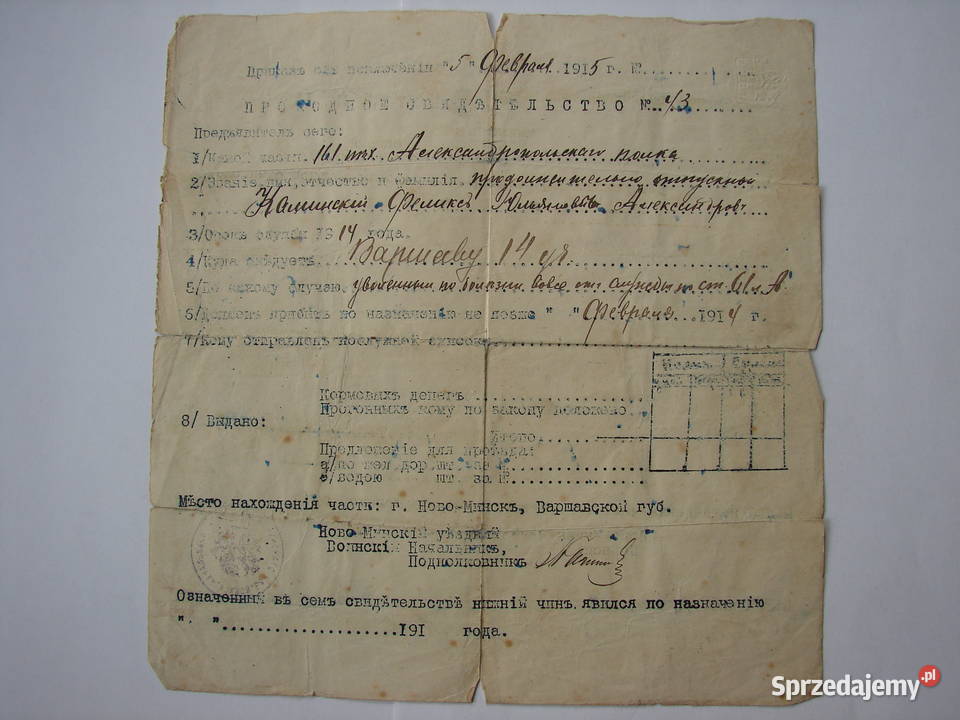 Приказъ объ исключеніи "5" Февраля 1915 г. №
ПРОХОДНОЕ СВИДѢТЕЛЬСТВО № 43
Предъявитель сего:
1/Какой части 161 пѣх. Александропольскаго полка
2/Званіе, имя, отчество и фамилія продолжительно отпускный
Каминскій Феликсъ Юльяновъ Александровъ
3/Срокъ службы 1914 года.
4/Куда слѣдуетъ Варшаву 14
5/По какому случаю уволенным по болезни вовсе отъ службы по ст.
6/Долженъ прибыть по назначенію не позже " " Февраля 1914 г.
7/Кому отправленъ послужной списокъ
8/ Выдано:
Кормовыхъ денегъ
Прогонныхъ кому по закону положено
Итого
Предложеніе для проѣзда:
а/по жел.дор. шт. за №
б/водою шт. за №
Мѣсто нахожденія части: г. Ново-Минскъ, Варшавской губ.
Ново-Минскій уѣздный
Воинскій Начальникъ,
Подполковникъ
Означенный въ семъ свидѣтельствѣ нижній чинъ явился по назначенію
" " 191 года.
Sprzedajemy.pl